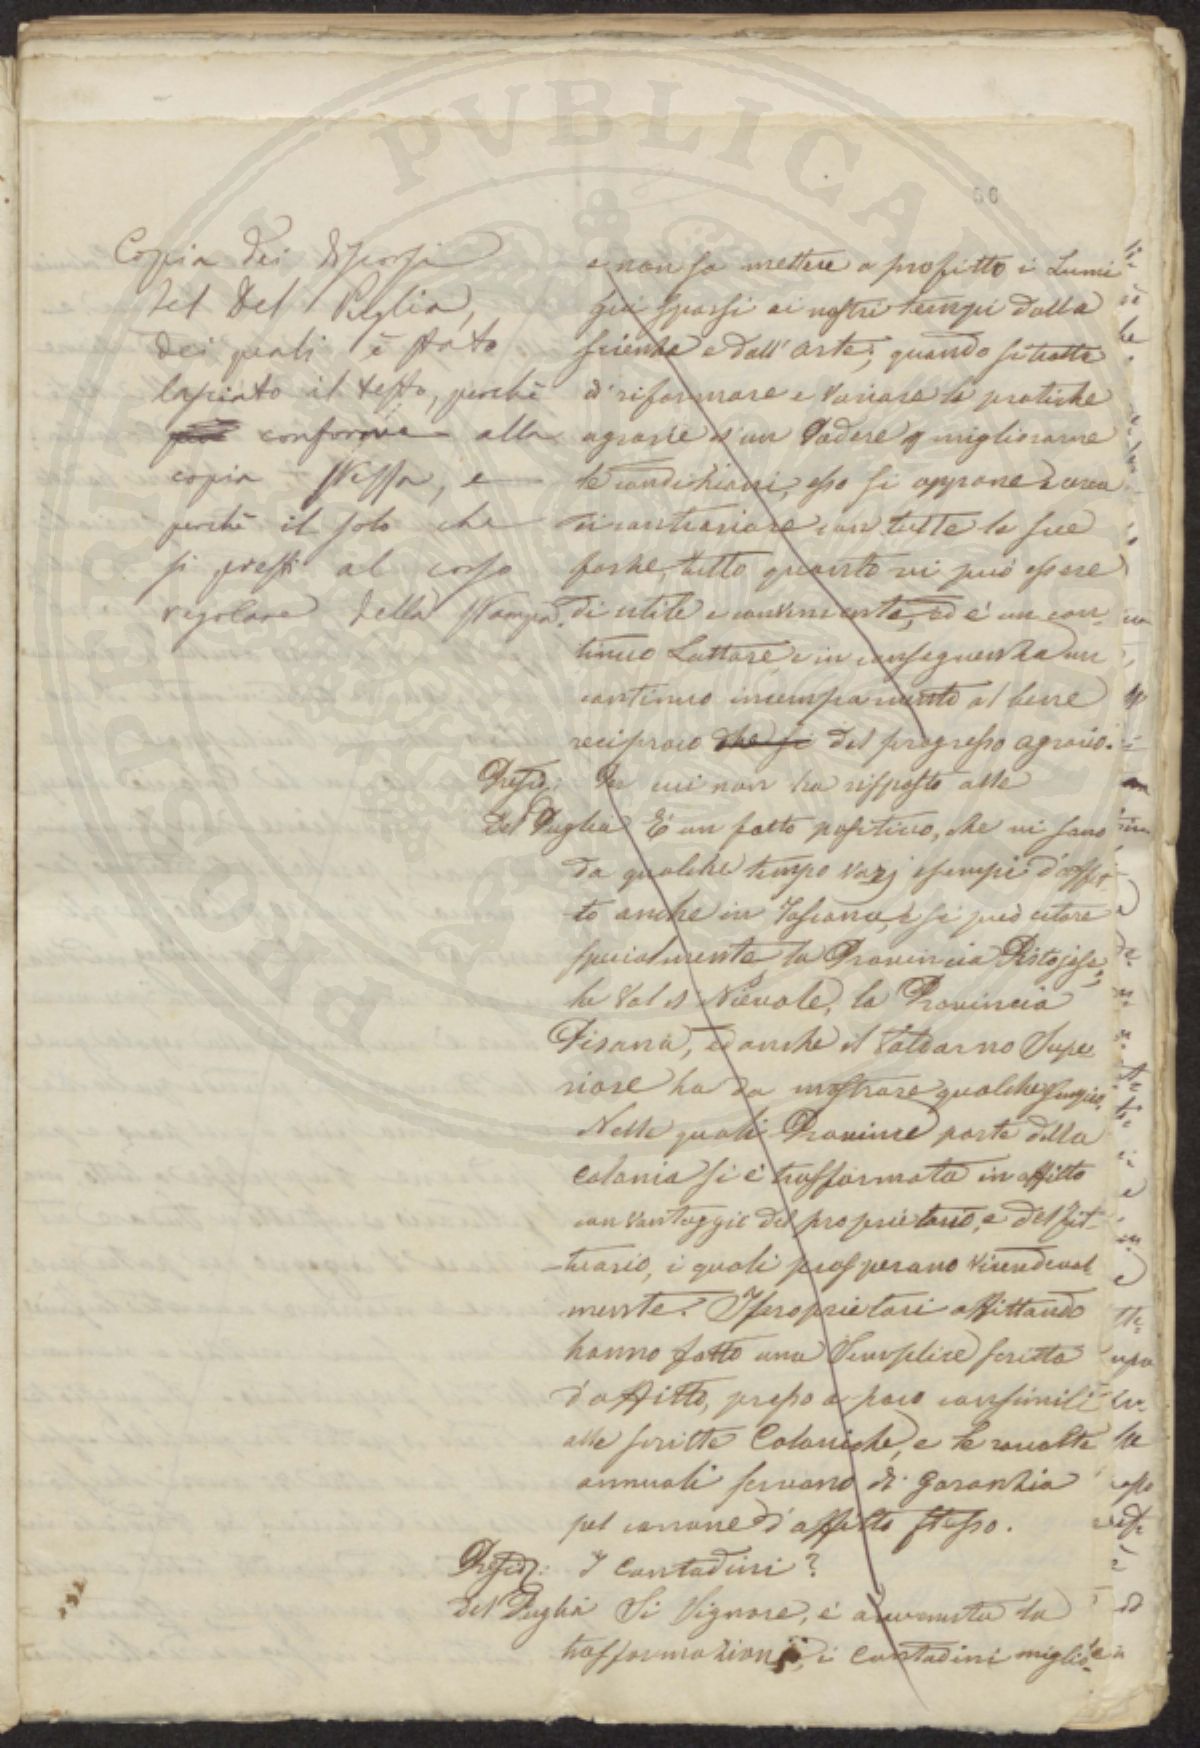 66
Copia dei discorsi
del Del Puglia,
dei quali è stato
lasciato il testo, perchè
conforme alla
copia stessa, e
perchè il solo che
si presti al corso
regolare della stampa.
e non sa mettere a profitto i Lumi
già sparsi ai nostri tempi dalla
scienza e dall'arte; quando si tratta
di riformare e variare le pratiche
agrarie d'un Podere p migliorarne
le condizioni, esso si oppone e cerca
di contrariare con tutte le sue
forze, tutto quanto vi può essere
di utile e conveniente, ed è un con-
tinuo Lottare, e in conseguenza un
continuo inceppamento al bene
reciproco che si del progresso agrario.
Presid: In cui non ha risposto alle
Del Puglia È un fatto positivo, che vi sono
da qualche tempo varj esempi d'affit-
to anche in Toscana, e si può citare
specialmente la Provincia Pistojese,
la Val di Nievole, la Provincia
Pisana, ed anche il Valdarno Supe
riore ha da mostrare qualche esempio.
Nelle quali Provincie parte della
Colonia si è trasformata in affitto
con vantaggio del proprietario, e del fit-
tuario, i quali prosperano vicendevol
mente. I proprietari affittando
hanno fatto una semplice scritta
d'affitto, presso a poco consimili
alle scritte Coloniche, e le raccolte
annuali servono di garanzia
pel canone d'affitto stesso.
Presid: I Contadini?
Del Puglia Sì Signore, è avvenuta la
trasformazione, i Contadini miglio